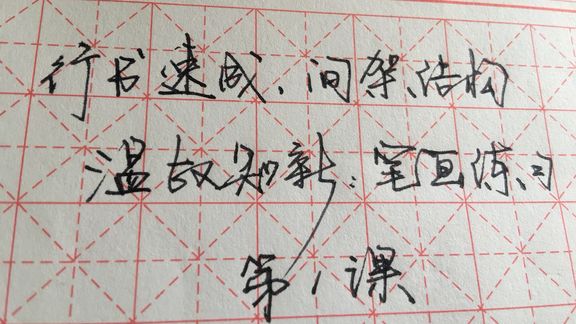 行书速成、间架结构
温故知新:笔画练习
第1课